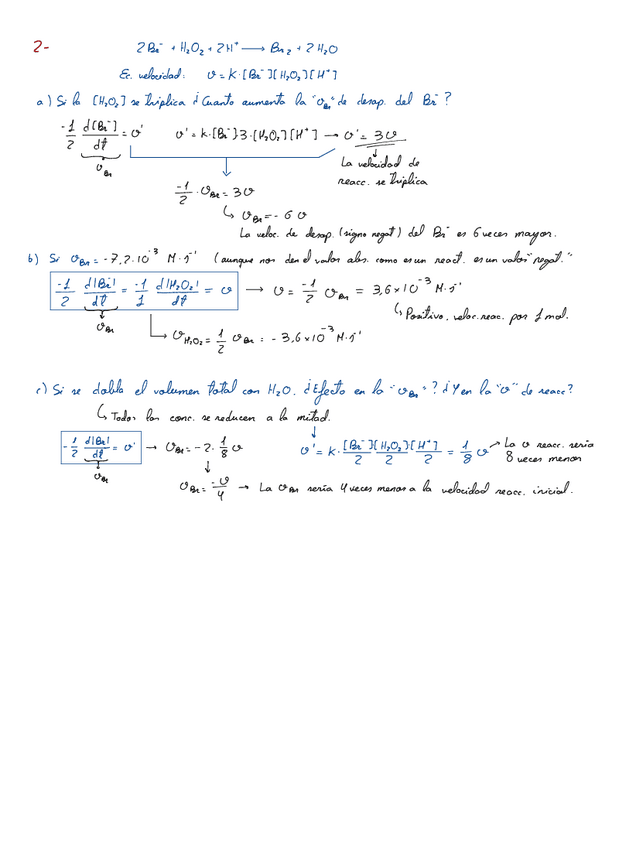 2- 2Br⁻ + H₂O₂ + 2H⁺ ⟶ Br₂ + 2H₂O
Ec. velocidad: v = k·[Br⁻][H₂O₂][H⁺]
a) Si la [H₂O₂] se triplica ¿Cuanto aumenta la "v_Br" de desap. del Br⁻?
-1/2 d[Br⁻]/dt = v' v' = k·[Br⁻]3·[H₂O₂][H⁺] → v' = 3v
v_Br
La velocidad de
reacc. se triplica
-1/2 · v_Br = 3v
↳ v_Br = - 6v
La veloc. de desap. (signo negat) del Br⁻ es 6 veces mayor.
b) Si v_Br = -7,2·10⁻³ M·s⁻¹ (aunque nos den el valor abs. como es un react. es un valor "negat."
-1/2 d|Br⁻|/dt = -1/1 d|H₂O₂|/dt = v → v = -1/2 v_Br = 3,6×10⁻³ M·s⁻¹
v_Br
↳ Positivo, veloc. reac. por 1 mol.
↳ v_H₂O₂ = 1/2 v_Br = - 3,6×10⁻³ M·s⁻¹
c) Si se dobla el volumen total con H₂O. ¿Efecto en la "v_Br"? ¿Y en la "v" de reacc?
↳ Todas las conc. se reducen a la mitad.
-1/2 d|Br⁻|/dt = v' → v_Br = -2·1/8 v v' = k·[Br⁻]/2 [H₂O₂]/2 [H⁺]/2 = 1/8 v La v reacc. sería
8 veces menor
v_Br
v_Br = -v/4 → La v_Br sería 4 veces menor a la velocidad reacc. inicial.